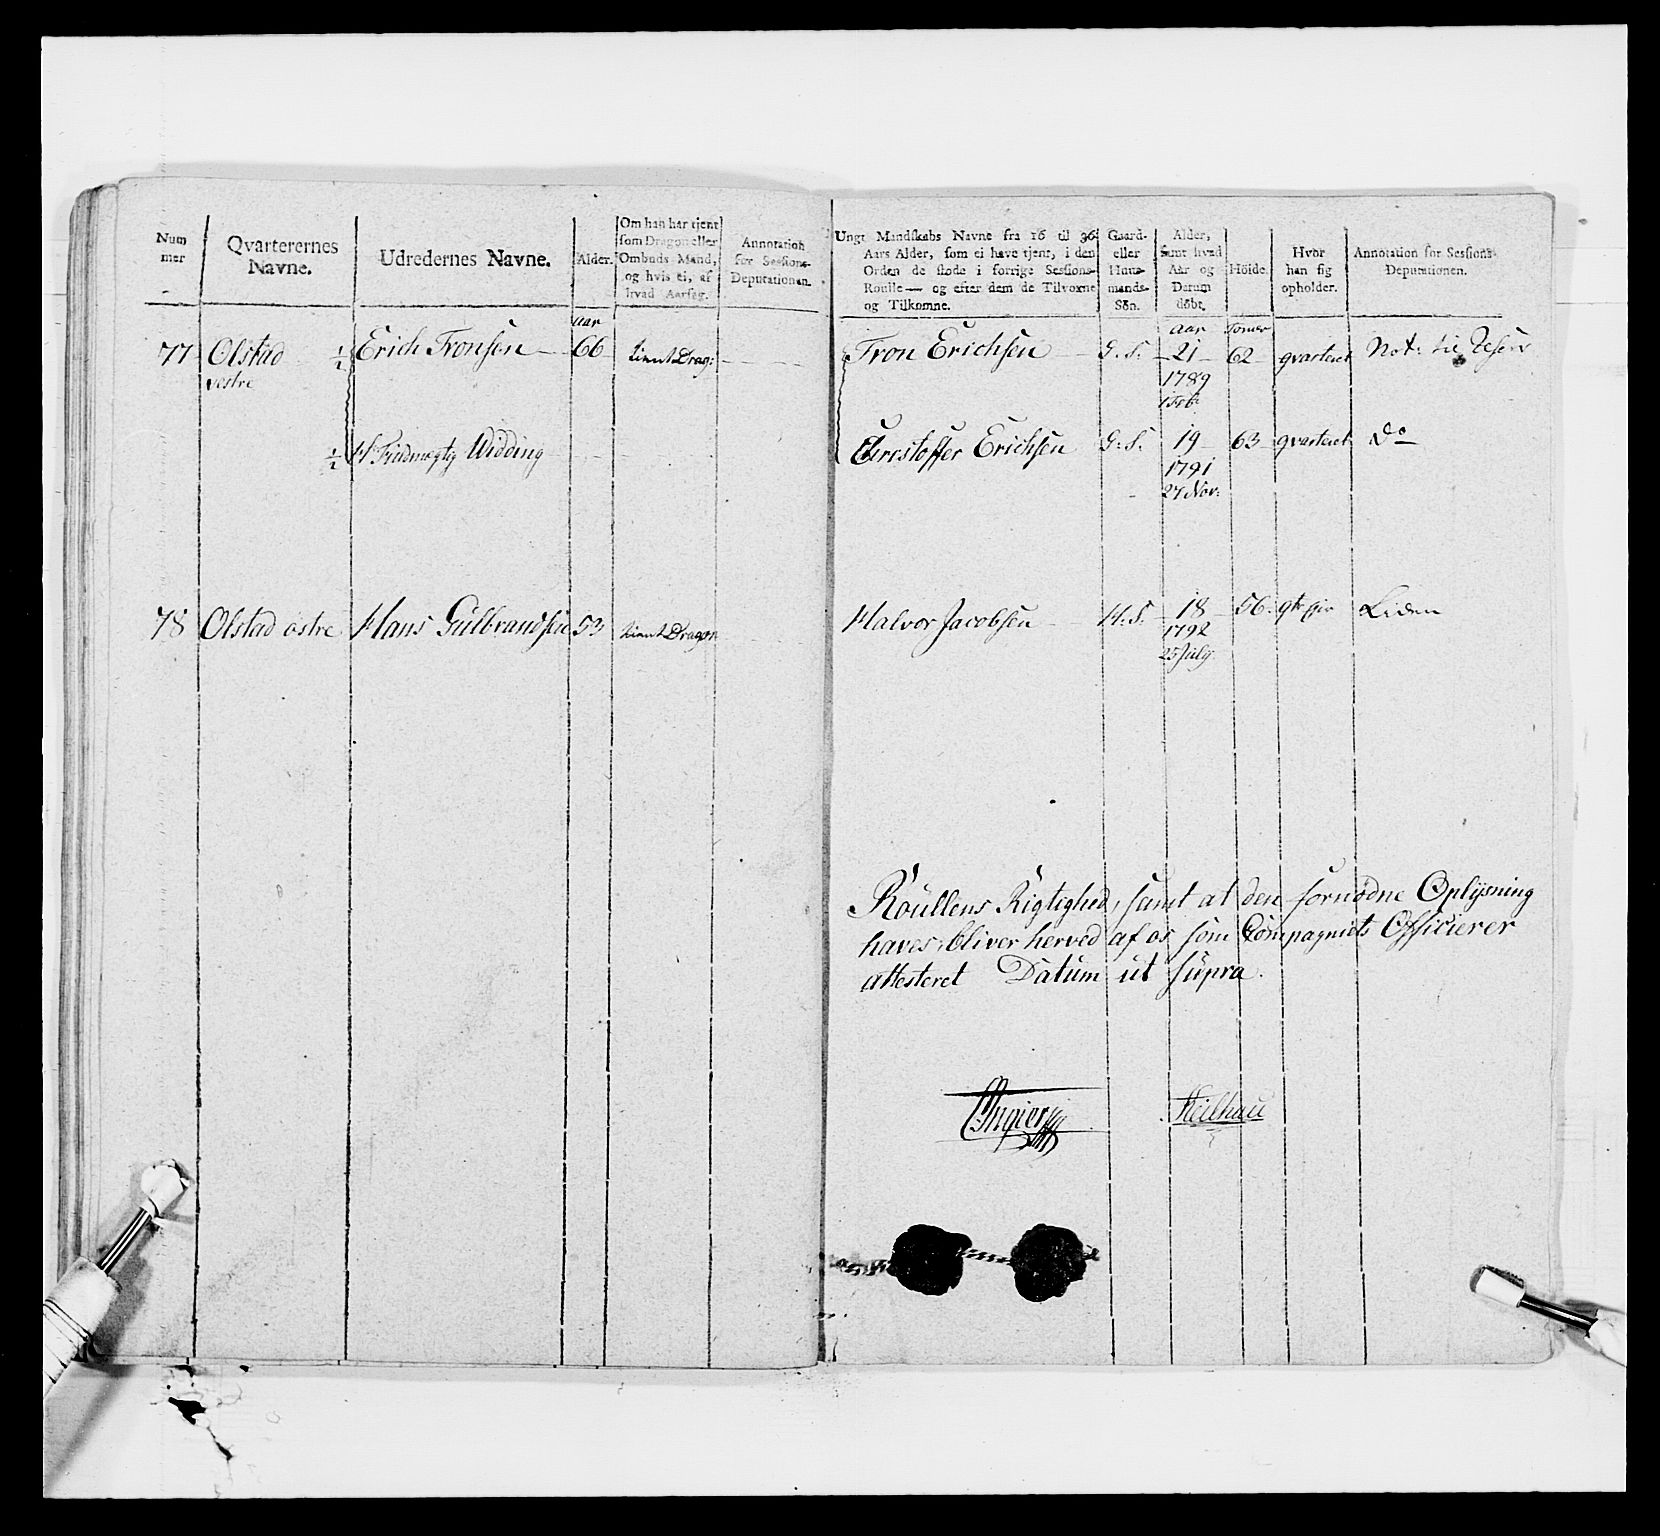 Num
mer
Qvarterernes
Navne.
Udredernes Navne.
Alder.
Om han har tjent
som Dragon eller
Ombuds Mand,
og hvis ei, af
hvad Aarsag.
Annotation
for Sessions-
Deputationen.
Ungt Mandskabs Navne fra 16 til 36
Aars Alder, som ei have tjent, i den
Orden de stode i forrige Sessions-
Roulle — og efter dem de Tilvoxne
og Tilkomne.
Gaard-
eller
Huus-
mands-
Søn.
Alder,
samt hvad
Aar og
Datum
døbt.
Høide.
Hvor
han sig
opholder.
Annotation for Sessions-
Deputationen.
77 Olstad 1/2 Erich Tronsen Aar 66 tient Drag:
vestre
Tron Erichsen G. S. Aar 21 Tomer 62 qvarteret Not: til Reserv
1789
1 Feb:
1/2 Hr Fuldmegtig Widding
Christoffer Erichsen G. S. 19 63 qvarteret Do
1791
27 Nov:
78 Olstad østre Hans Gulbrandsen 53 tient Dragon
Halvor Jacobsen H. S. 18 56 Liden
1792
25 July
Roullens Rigtighed, samt at den fornødne Oplysning
haves, bliver herved af os som Compagniets Officierer
attesteret Datum ut supra.
Angier Keilhau